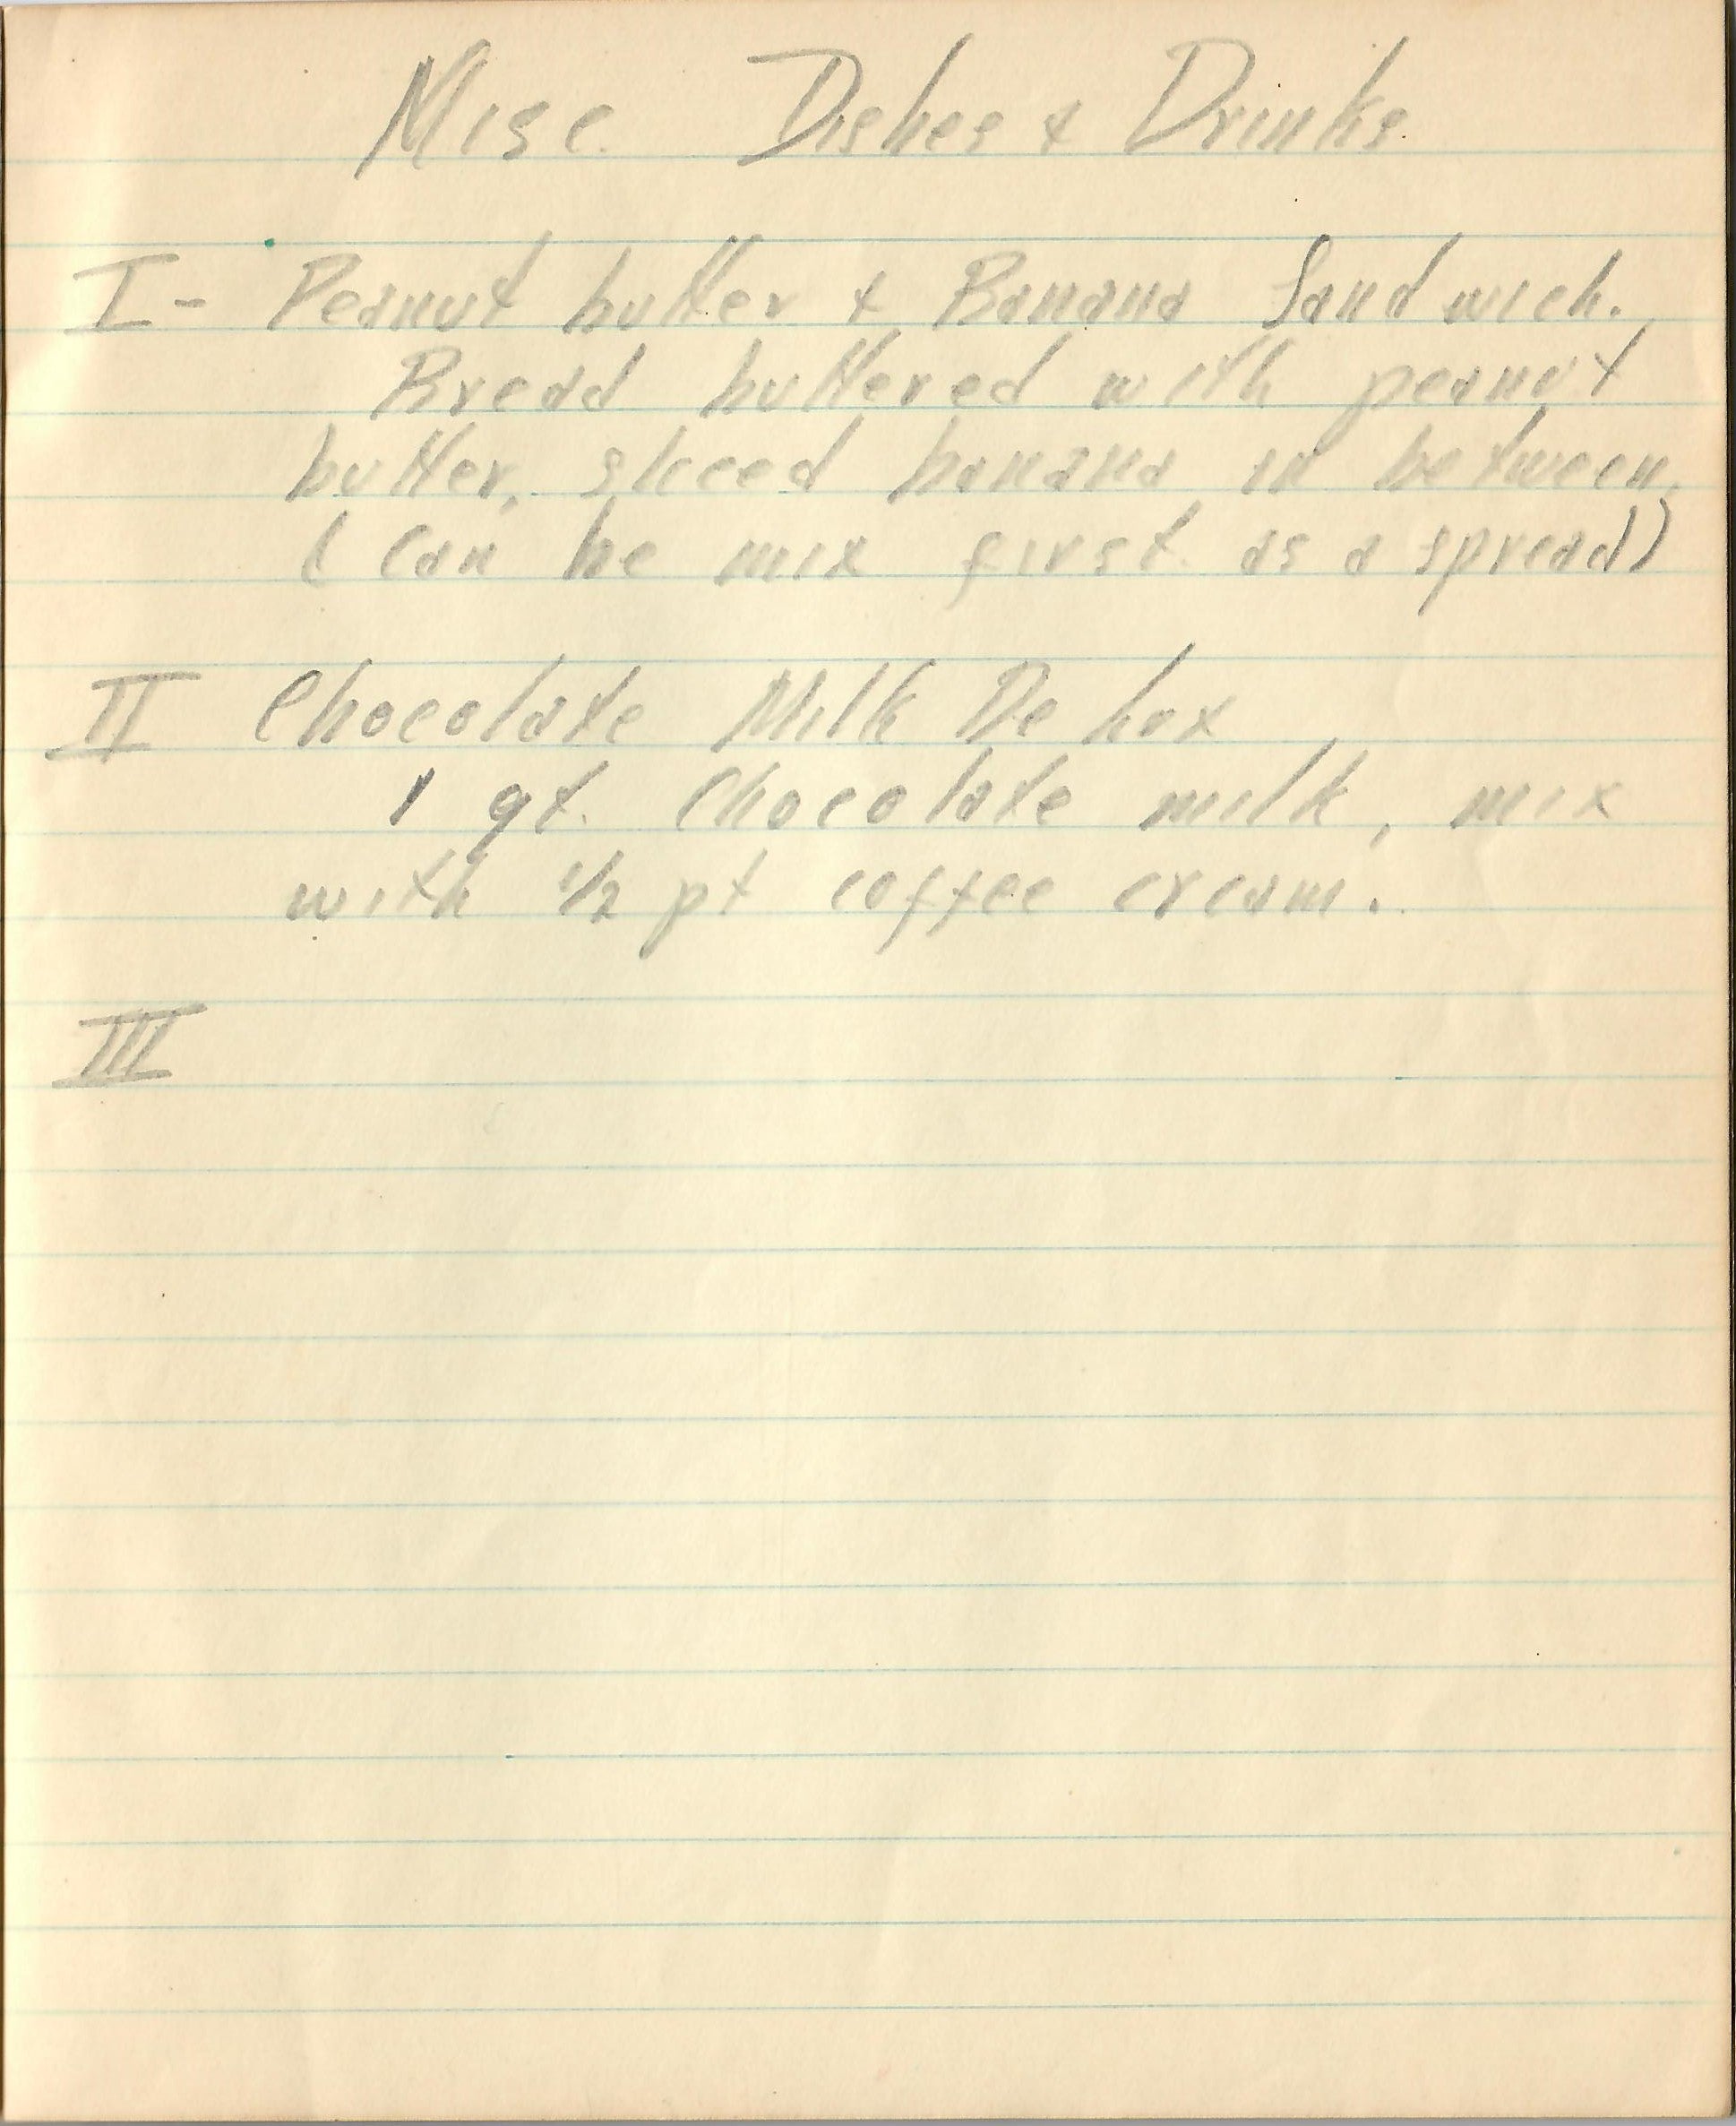 Misc. Dishes & Drinks
I- Peanut butter & Banana Sandwich.
Bread buttered with peanut
butter, sliced banana in between.
(Can be mix first as a spread)
II Chocolate Milk De hox
1 qt. Chocolate milk, mix
with 1/2 pt coffee cream.
III